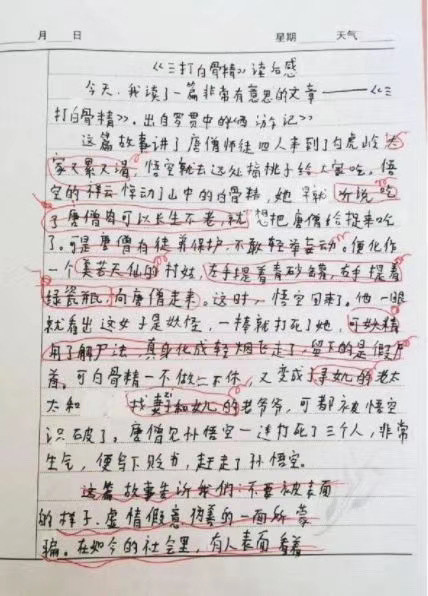 月 日 星期 天气
《三打白骨精》读后感
今天,我读了一篇非常有意思的文章——《三
打白骨精》,出自罗贯中的《西游记》
这篇故事讲了唐僧师徒四人来到了白虎岭,大
家又累又渴,悟空就去远处摘桃子给大家吃,悟
空的祥云惊动了山中的白骨精,她早就听说吃
了唐僧肉可以长生不老,就想把唐僧给捉来吃
了。可是唐僧有徒弟保护,不敢轻举妄动。便化作
一个美若天仙的村姑,左手提着青砂罐,右手提着
绿瓷瓶,向唐僧走来。这时,悟空回来了。他一眼
就看出这女子是妖怪,一棒就打死了她,可妖精
用了解尸法,真身化成轻烟飞走了,留下的是假尸
首。可白骨精一不做二不休,又变成了寻女儿的老太
太和 找妻子和女儿的老爷爷,可都被悟空
识破了。唐僧见孙悟空一连打死了三个人,非常
生气,便写下贬书,赶走了孙悟空。
这篇故事告诉我们:不要被表面
的样子、虚情假意、伪善的一面所蒙
骗。在如今的社会里,有人表面看着